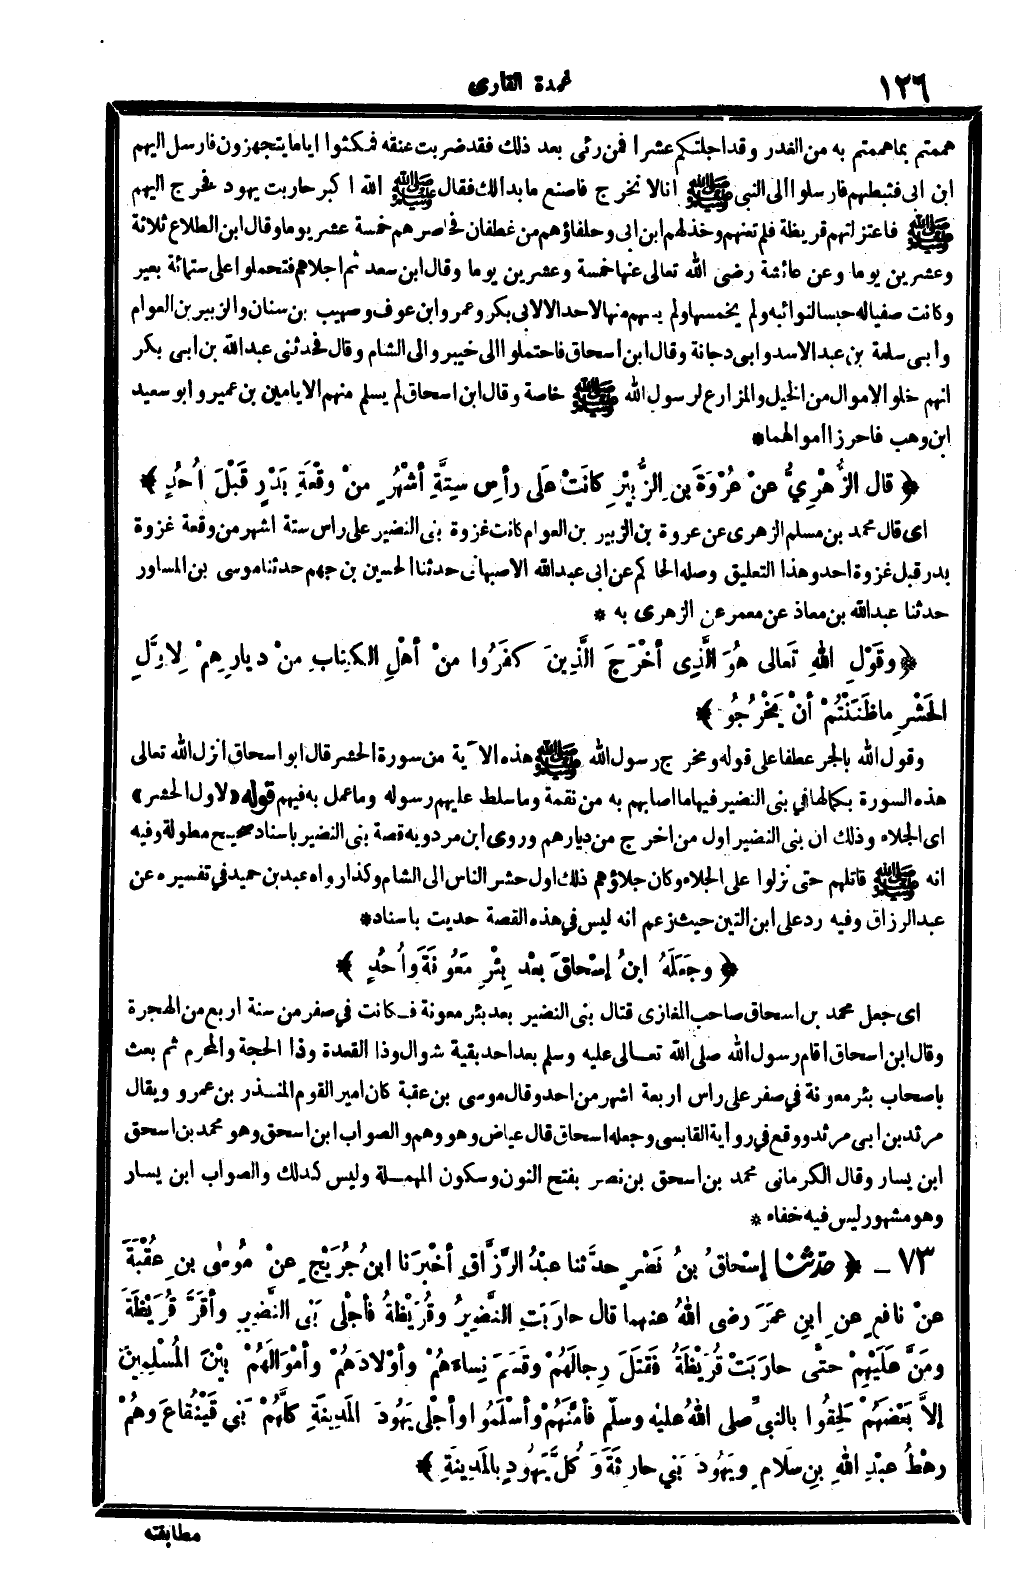 ١٢٦
عمدة القارى
هممتم بما هممتم به من الغدر وقد اجلتكم عشرا فمن رئى بعد ذلك فقد ضربت عنقه فمكثوا اياما يتجهزون فارسل اليهم
ابن ابى فثبطهم فارسلوا الى النبى ﷺ انا لا نخرج فاصنع ما بدا لك فقال ﷺ الله اكبر حاربت يهود فخرج اليهم
ﷺ فاعتزلتهم قريظة فلم تعنهم وخذلهم ابن ابى وحلفاؤهم من غطفان فحاصرهم خمسة عشر يوما وقال ابن الطلاع ثلاثة
وعشرين يوما وعن عائشة رضى الله تعالى عنها خمسة وعشرين يوما وقال ابن سعد ثم اجلاهم فتحملوا على ستمائة بعير
وكانت صفياله حبسا لنوائبه ولم يخمسها ولم يسهم منها لاحد الا لابى بكر وعمر وابن عوف وصهيب بن سنان والزبير بن العوام
وابى سلمة بن عبد الاسد وابى دجانة وقال ابن اسحاق فاحتملوا الى خيبر والى الشام وقال فحدثنى عبد الله بن ابى بكر
انهم خلوا الاموال من الخيل والمزارع لرسول الله ﷺ خاصة وقال ابن اسحاق لم يسلم منهم الا يامين بن عمير وابو سعيد
ابن وهب فاحرزا اموالهما *
﴿ قال الزُّهْرِيُّ عنْ عُرْوَةَ بن الزُّبَيْرِ كانَتْ عَلى رأسِ سِتَّةِ أشْهُرٍ منْ وقْعَةِ بَدْرٍ قَبْلَ أُحُدٍ ﴾
اى قال محمد بن مسلم الزهرى عن عروة بن الزبير بن العوام كانت غزوة بنى النضير على راس ستة اشهر من وقعة غزوة
بدر قبل غزوة احد وهذا التعليق وصله الحاكم عن ابى عبد الله الاصبهانى حدثنا الحسين بن جهم حدثنا موسى بن المساور
حدثنا عبد الله بن معاذ عن معمر عن الزهرى به *
﴿ وقَوْلِ اللهِ تَعالى هُوَ الَّذِى أخْرَجَ الَّذِينَ كَفَرُوا منْ أهْلِ الكِتابِ منْ دِيارِهِمْ لِاوَّلِ
الحَشْرِ ماظَنَنْتُمْ أنْ يَخْرُجُو ﴾
وقول الله بالجر عطفا على قوله ومخرج رسول الله ﷺ هذه الآية من سورة الحشر قال ابو اسحاق انزل الله تعالى
هذه السورة بكمالها فى بنى النضير فيها ما اصابهم به من نقمة وما سلط عليهم رسوله وما عمل به فيهم قوله «لاول الحشر»
اى الجلاء وذلك ان بنى النضير اول من اخرج من ديارهم وروى ابن مردويه قصة بنى النضير باسناد صحيح مطولة وفيه
انه ﷺ قاتلهم حتى نزلوا على الجلاء وكان جلاؤهم ذلك اول حشر الناس الى الشام وكذا رواه عبد بن حميد فى تفسيره عن
عبد الرزاق وفيه رد على ابن التين حيث زعم انه ليس فى هذه القصة حديث باسناد *
﴿ وجَعَلَهُ ابنُ إسْحاقَ بعْدَ بِئْرِ مَعُونَةَ وأُحُدٍ ﴾
اى جعل محمد بن اسحاق صاحب المغازى قتال بنى النضير بعد بئر معونة فكانت فى صفر من سنة اربع من الهجرة
وقال ابن اسحاق اقام رسول الله صلى الله تعالى عليه وسلم بعد احد بقية شوال وذا القعدة وذا الحجة والمحرم ثم بعث
باصحاب بئر معونة فى صفر على راس اربعة اشهر من احد وقال موسى بن عقبة كان امير القوم المنذر بن عمرو ويقال
مرثد بن ابى مرثد ووقع فى رواية القابسى وجعله اسحاق قال عياض وهو وهم والصواب ابن اسحق وهو محمد بن اسحق
ابن يسار وقال الكرمانى محمد بن اسحق بن نصر بفتح النون وسكون المهملة وليس كذلك والصواب ابن يسار
وهو مشهور ليس فيه خفاء *
٧٣ _ ﴿ حدّثنا إسْحاقُ بنُ نَصْرٍ حدَّثنا عبْدُ الرَّزَّاقِ أخْبَرَنا ابنُ جُرَيْجٍ عنْ مُوسَى بنِ عُقْبَةَ
عنْ نافِعٍ عنِ ابنِ عمَرَ رضى اللهُ عنهما قال حارَبَتِ النَّضِيرُ وقُرَيْظةُ فأجْلى بَنى النَّضِيرِ وأقَرَّ قُرَيْظَةَ
ومَنَّ عَلَيْهِمْ حتَّى حارَبَتْ قُرَيْظَةُ فَقَتَلَ رِجالَهُمْ وقَسَمَ نِساءَهُمْ وأوْلادَهُمْ وأمْوَالَهُمْ بيْنَ المُسْلِمِينَ
إلاَّ بَعْضَهُمْ لَحِقُوا بالنبىِّ صلى اللهُ عليْه وسلَّم فأمَّنَهُمْ وأسْلَمُوا وأجْلى يَهُودَ المَدِينَةِ كلَّهُمْ بَنِي قَيْنُقاعَ وهُمْ
رهْطُ عبْدِ اللهِ بنِ سلَامٍ ويَهُودَ بَنِي حارِثَةَ وَكُلَّ يَهُودٍ بالمَدِينَةِ ﴾
مطابقته